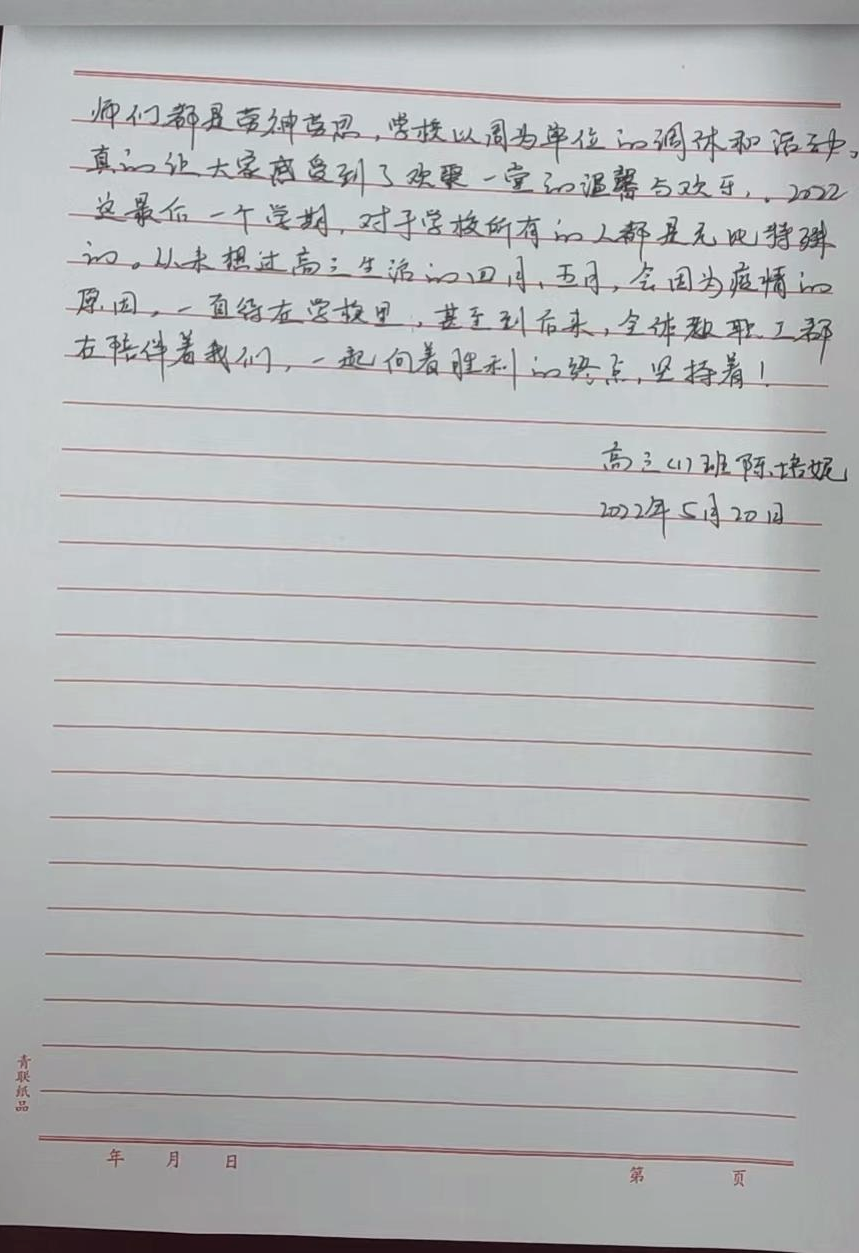 师们都是劳神劳思，学校以周为单位的调休和活动，
真的让大家感受到了欢聚一堂的温馨与欢乐，．2022
这最后一个学期，对于学校所有的人都是无比特殊
的。从未想过高三生活的四月、五月，会因为疫情的
原因，一直待在学校里，甚至到后来，全体教职工都
在陪伴着我们，一起向着胜利的终点，坚持着！
高三(1)班 陈培妮
2022年5月20日
青联纸品
年 月 日
第 页